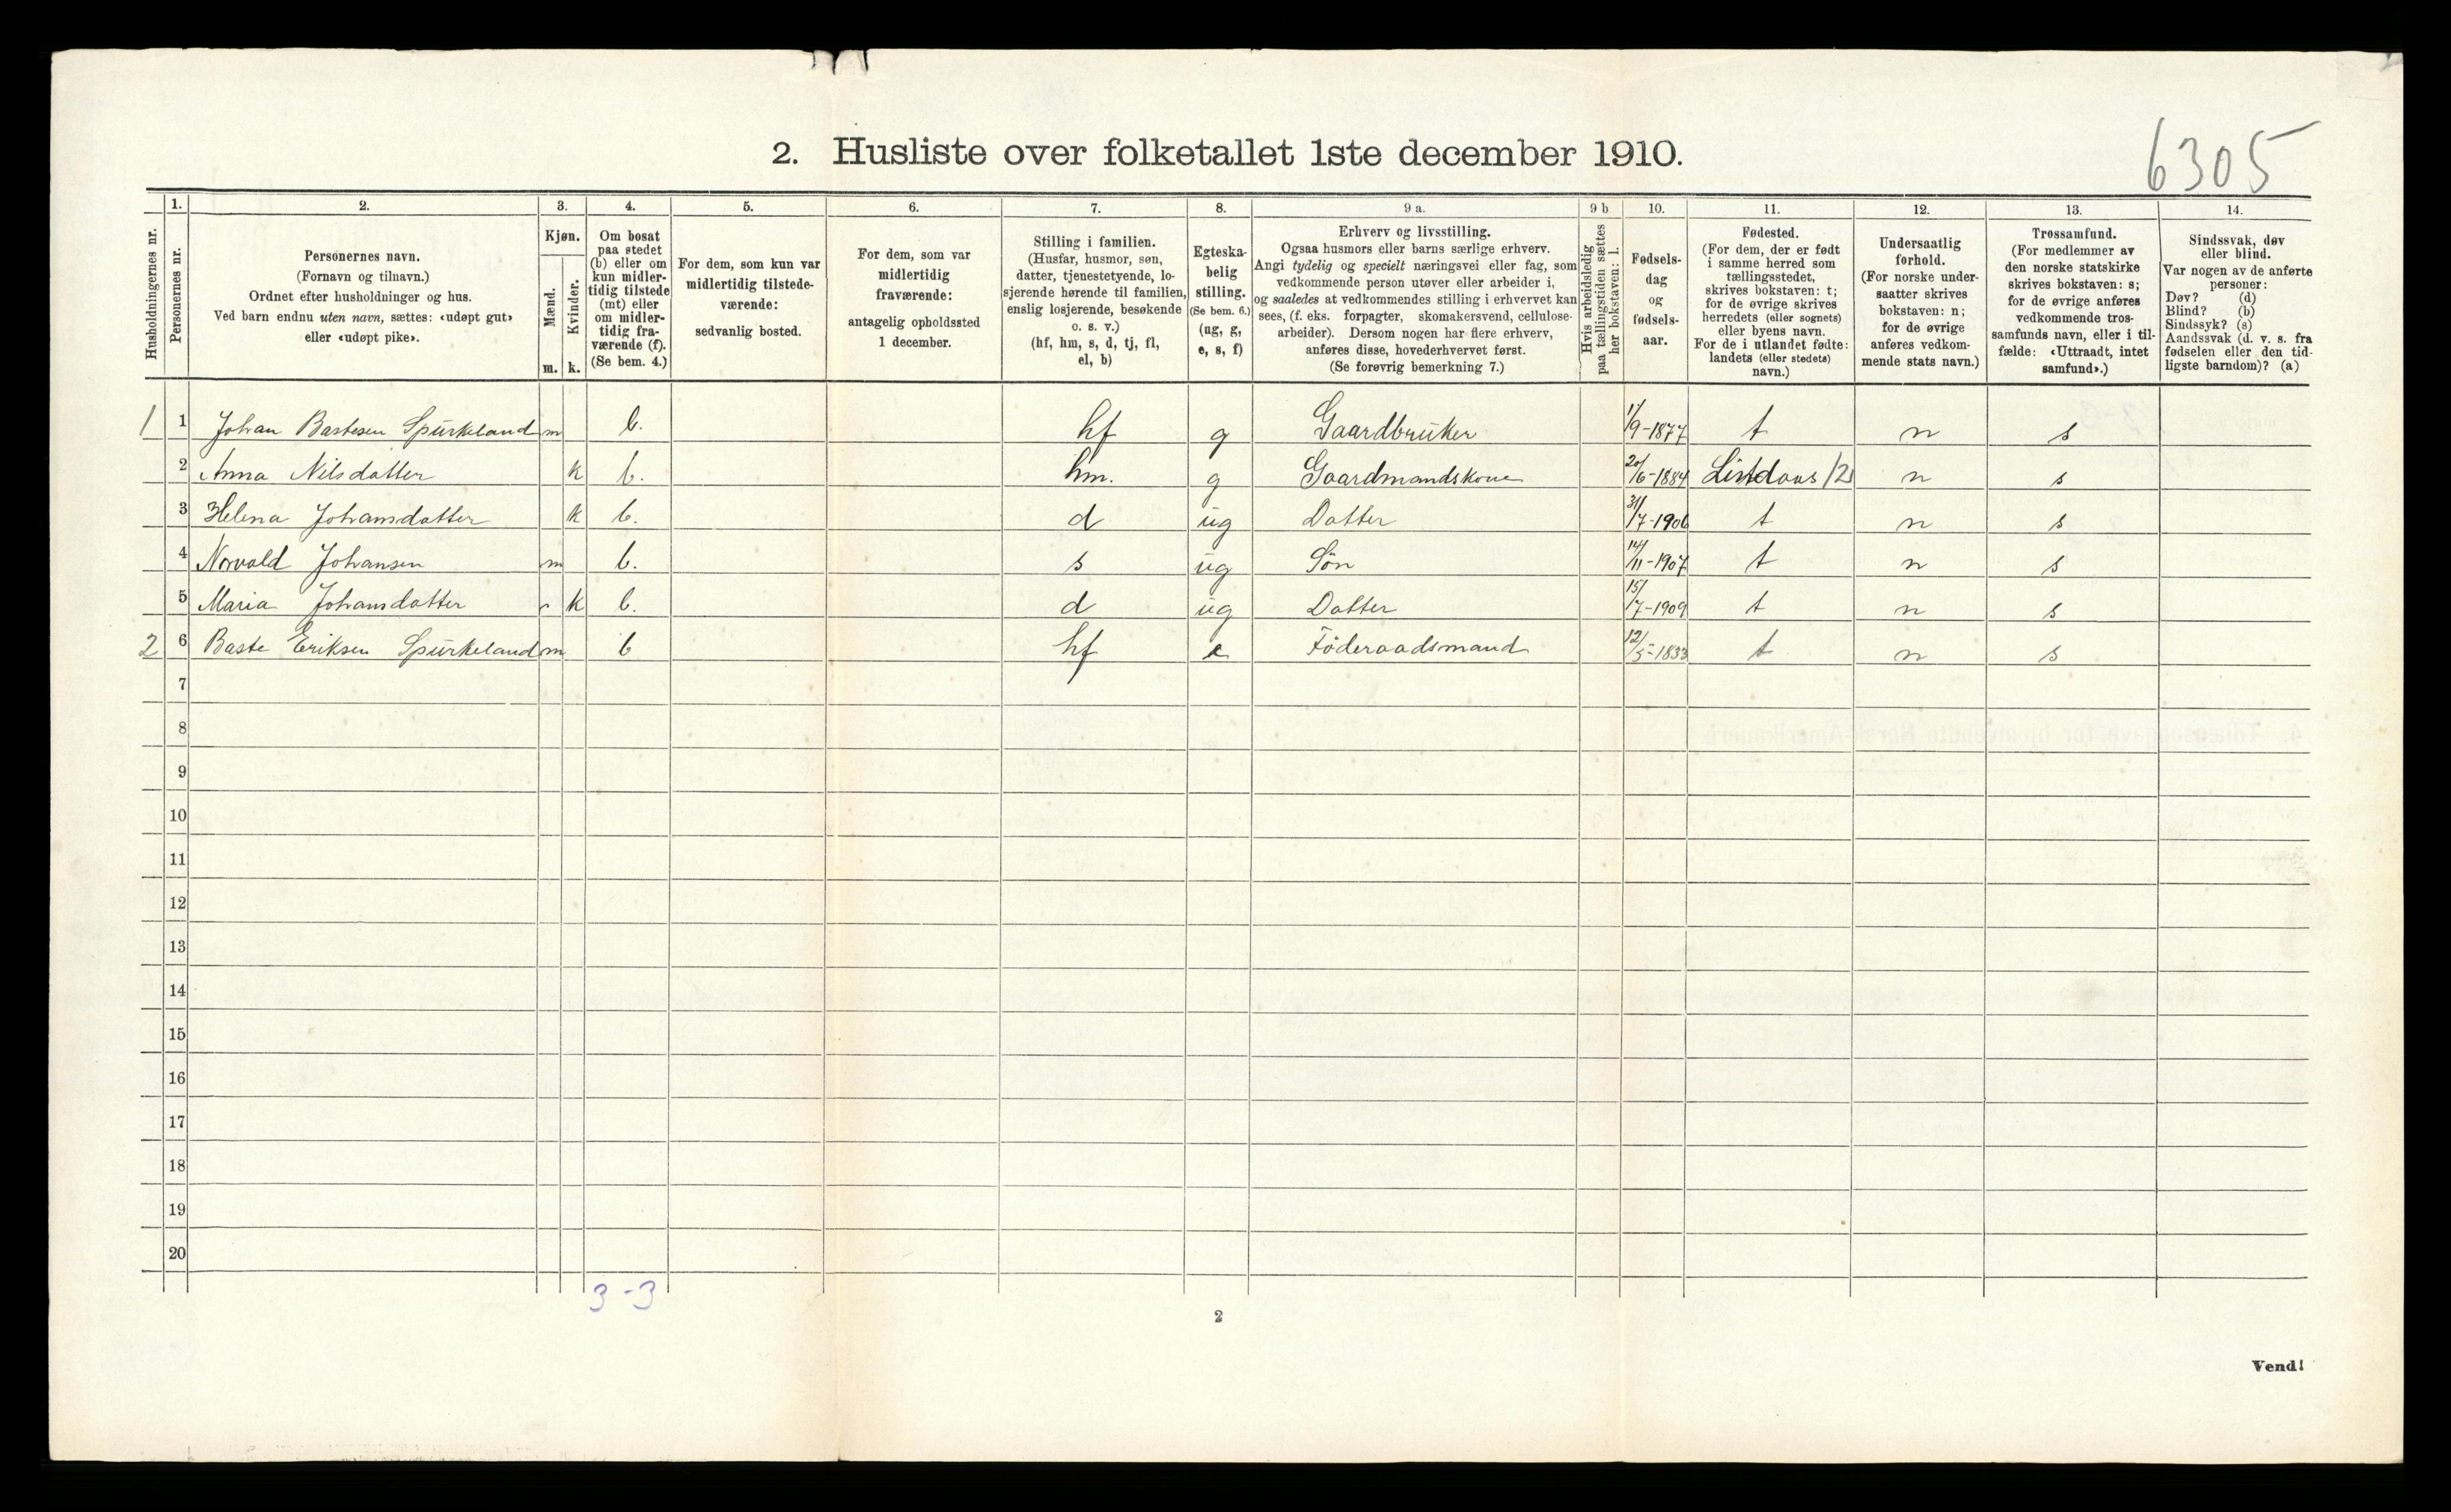 6305
2. Husliste over folketallet 1ste december 1910.
Husholdningernes nr.
1.
Personernes nr.
2.
Personernes navn.
(Fornavn og tilnavn.)
Ordnet efter husholdninger og hus.
Ved barn endnu uten navn, sættes: «udøpt gut»
eller «udøpt pike».
3.
Kjøn.
Mænd.
Kvinder.
m. k.
4.
Om bosat
paa stedet
(b) eller om
kun midler-
tidig tilstede
(mt) eller
om midler-
tidig fra-
værende (f).
(Se bem. 4.)
5.
For dem, som kun var
midlertidig tilstede-
værende:
sedvanlig bosted.
6.
For dem, som var
midlertidig
fraværende:
antagelig opholdssted
1 december.
7.
Stilling i familien.
(Husfar, husmor, søn,
datter, tjenestetyende, lo-
sjerende hørende til familien,
enslig losjerende, besøkende
o. s. v.)
(hf, hm, s, d, tj, fl,
el, b)
8.
Egteska-
belig
stilling.
(Se bem. 6.)
(ug, g,
e, s, f)
9 a.
Erhverv og livsstilling.
Ogsaa husmors eller barns særlige erhverv.
Angi tydelig og specielt næringsvei eller fag, som
vedkommende person utøver eller arbeider i,
og saaledes at vedkommendes stilling i erhvervet kan
sees, (f. eks. forpagter, skomakersvend, cellulose-
arbeider). Dersom nogen har flere erhverv,
anføres disse, hovederhvervet først.
(Se forøvrig bemerkning 7.)
9 b
Hvis arbeidsledig
paa tællingstiden sættes
her bokstaven: l.
10.
Fødsels-
dag
og
fødsels-
aar.
11.
Fødested.
(For dem, der er født
i samme herred som
tællingsstedet,
skrives bokstaven: t;
for de øvrige skrives
herredets (eller sognets)
eller byens navn.
For de i utlandet fødte:
landets (eller stedets)
navn.)
12.
Undersaatlig
forhold.
(For norske under-
saatter skrives
bokstaven: n;
for de øvrige
anføres vedkom-
mende stats navn.)
13.
Trossamfund.
(For medlemmer av
den norske statskirke
skrives bokstaven: s;
for de øvrige anføres
vedkommende tros-
samfunds navn, eller i til-
fælde: «Uttraadt, intet
samfund».)
14.
Sindssvak, døv
eller blind.
Var nogen av de anførte
personer:
Døv? (d)
Blind? (b)
Sindssyk? (s)
Aandssvak (d. v. s. fra
fødselen eller den tid-
ligste barndom)? (a)
1 1 Johan Bastesen Spurkeland m b. hf g Gaardbruker 1/9-1877 t n s
2 Anna Nilsdatter k b. hm. g Gaardmandskone 20/6-1884 n s
3 Helena Johansdatter k b. d ug Datter 31/7-1906 t n s
4 Norvald Johansen m b. s ug Sön 14/11-1907 t n s
5 Maria Johansdatter k b. d ug Datter 15/7-1909 t n s
2 6 Baste Eriksen Spurkeland m b hf e Föderaadsmand 12/5-1833 t n s
7
8
9
10
11
12
13
14
15
16
17
18
19
20
3-3
2
Vend!